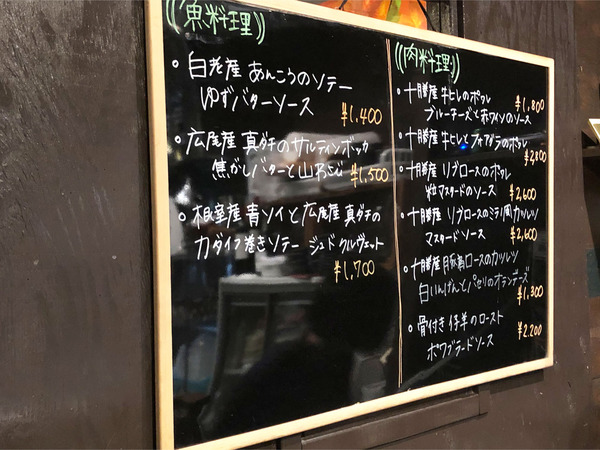 魚料理
白老産 あんこうのソテー
ゆずバターソース
¥1,400
広尾産 真ダチのサルティンボッカ
焦がしバターと山わさび
¥1,500
根室産 青ソイと広尾産 真ダチの
カダイフ巻きソテー ジュド クルヴェット
¥1,700
肉料理
十勝産 牛ヒレのポワレ
¥1,800
ブルーチーズと赤ワインのソース
十勝産 牛ヒレとフォアグラのポワレ
¥2,800
十勝産 リブロースのポワレ
粒マスタードのソース
¥2,600
十勝産 リブロースのミラノ風カツレツ
マスタードソース
¥2,600
十勝産 豚肩ロースのカツレツ
白いんげんとパセリのオランデーズ
¥1,300
骨付き 仔羊のロースト
¥2,200
ポワブラードソース